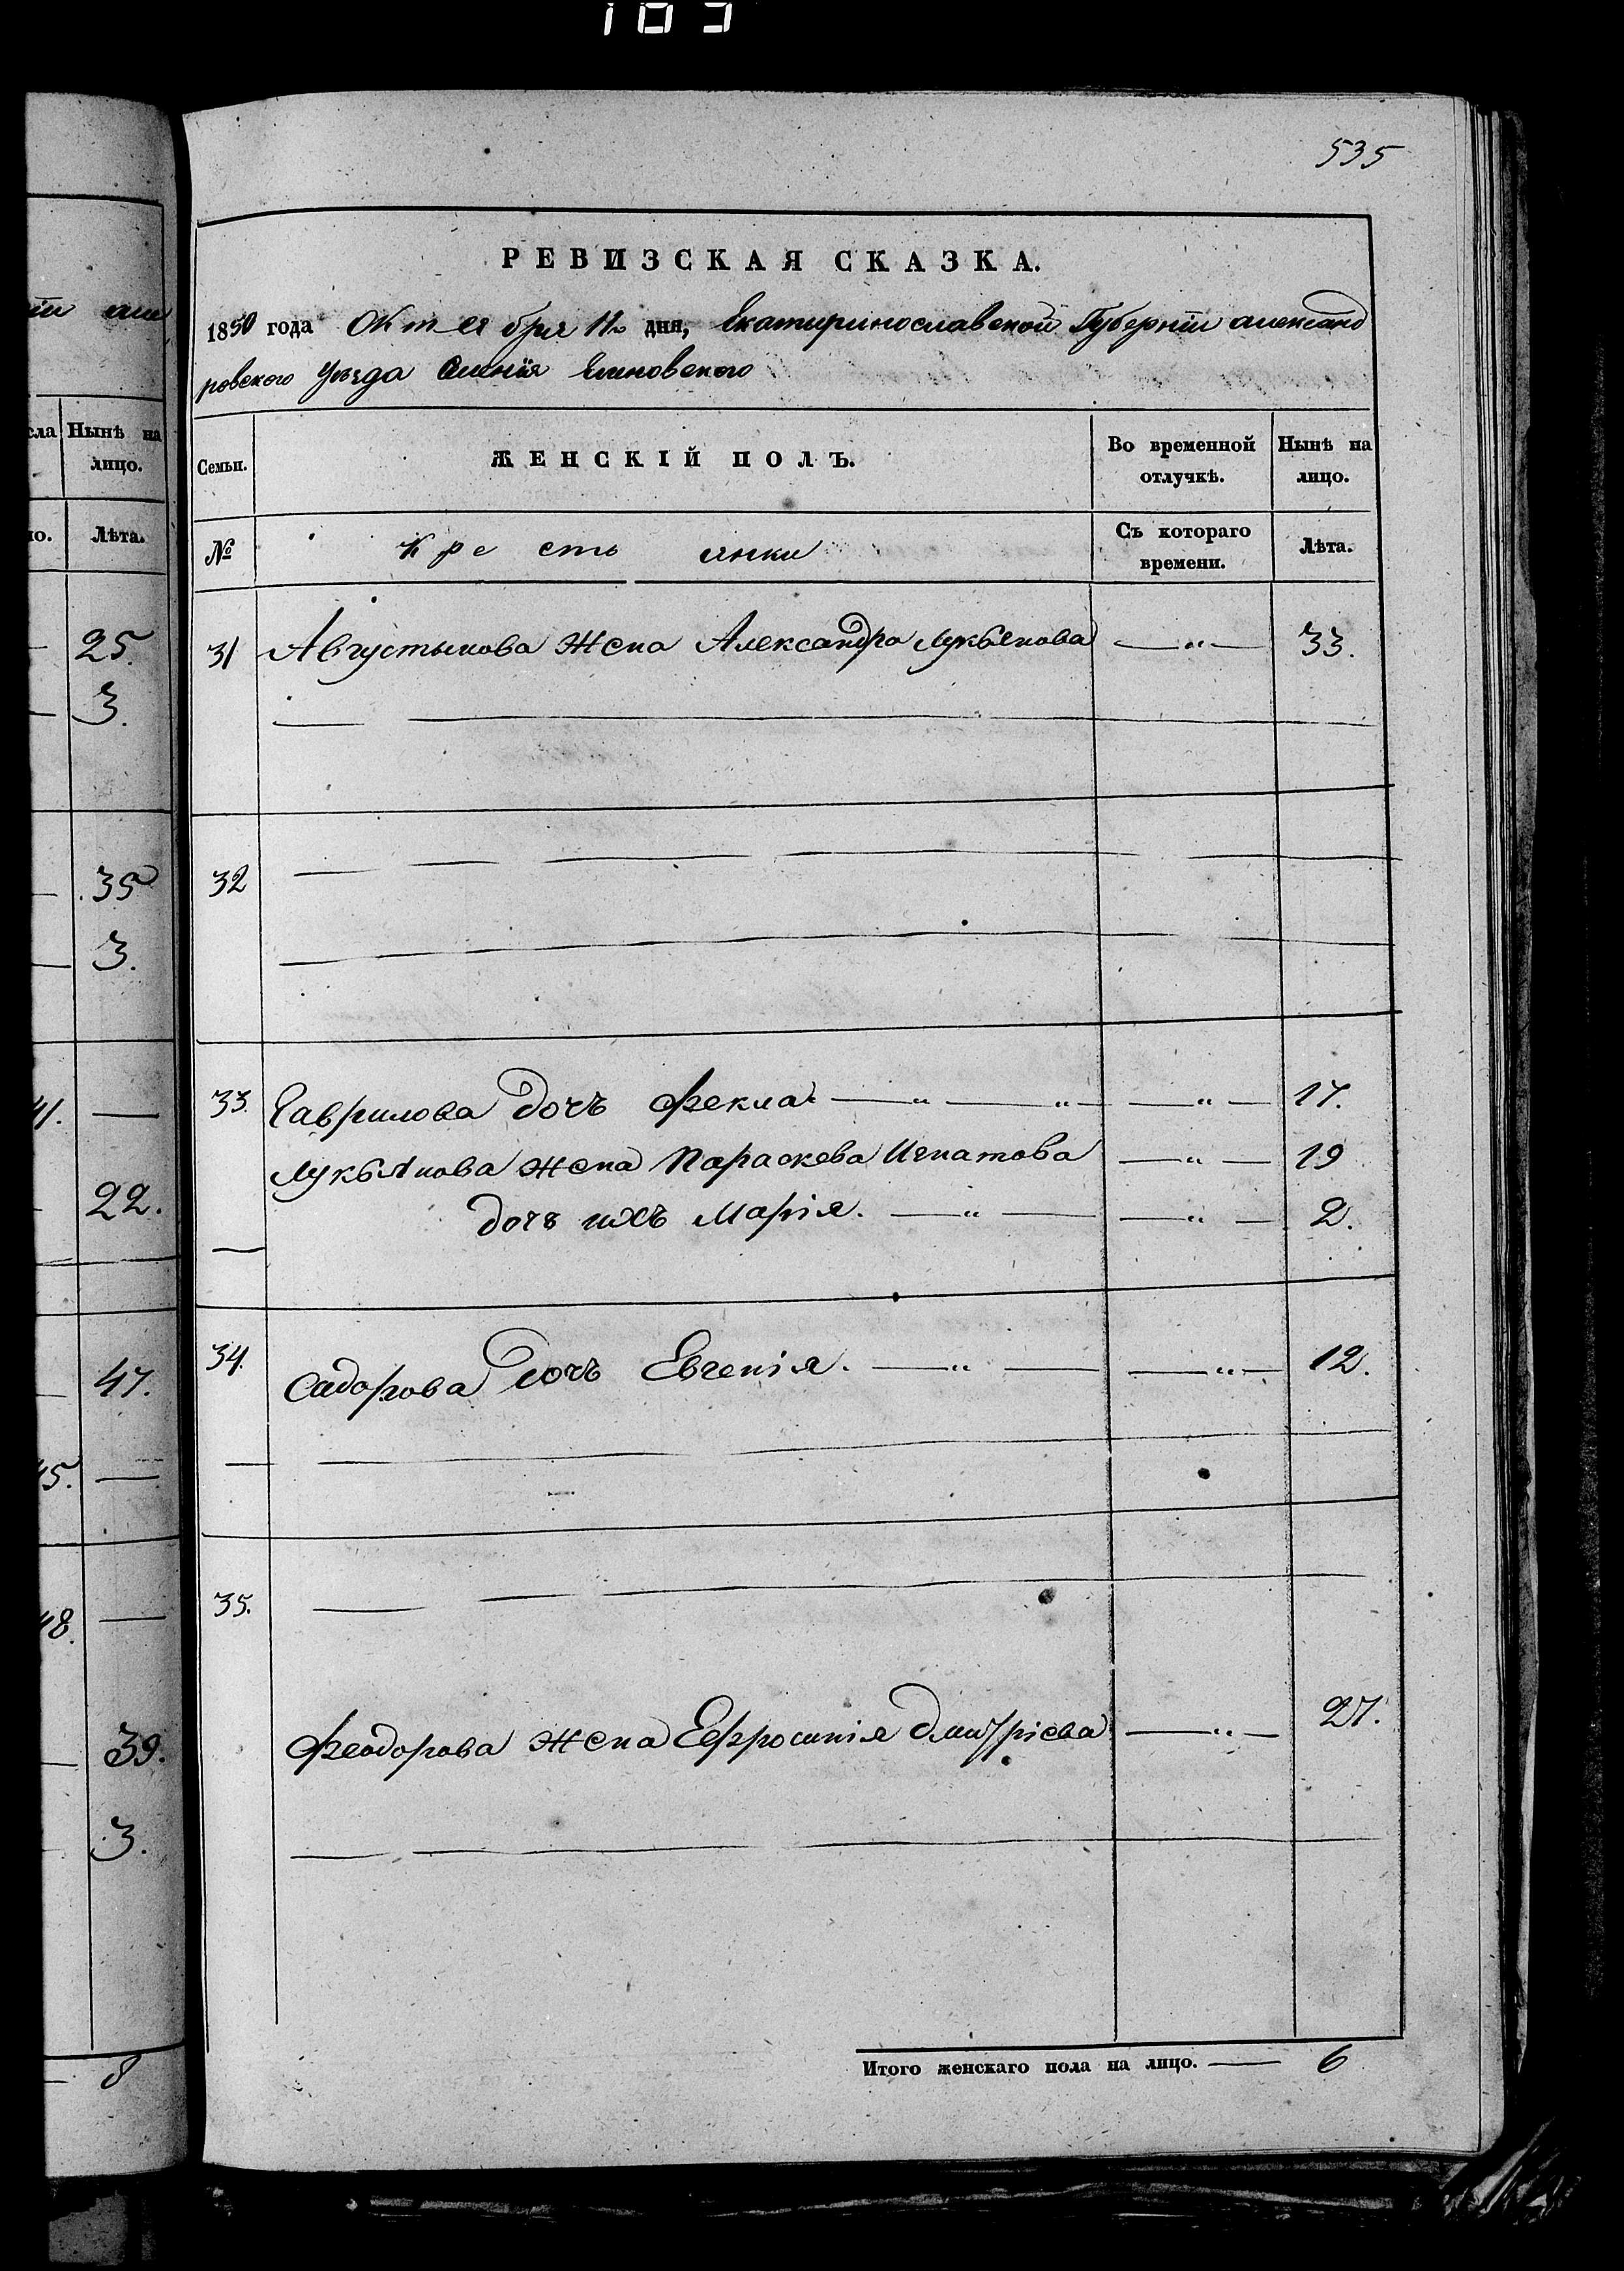 103
535
РЕВИЗСКАЯ СКАЗКА.
1850 года Октября 11 дня, Екатиринославской Губернiи александ
ровского уѣзда имѣнiя
сла Нынѣ на лицо.
Семьи. ЖЕНСКІЙ ПОЛЪ. Во временной отлучкѣ. Нынѣ на лицо.
ло. Лѣта.
№ Крестьянки Съ котораго времени. Лѣта.
25. 31 Августынова жена Александра Лукьянова —„— 33.
3.
35 32
3.
41. — 33. Гаврилова дочъ Фекла —„— —„— —„— 17.
22. Лукьянова жена Параскева Игнатова —„— 19
дочъ ихъ Марiя. —„— —„— 2.
47. 34. Садорова дочъ Евгенiя. —„— —„— 12.
45. —
48. — 35.
39. Феодорова жена Ефросинiя Дмитрiева —„— 27.
3.
8 Итого женскаго пола на лицо. — 6